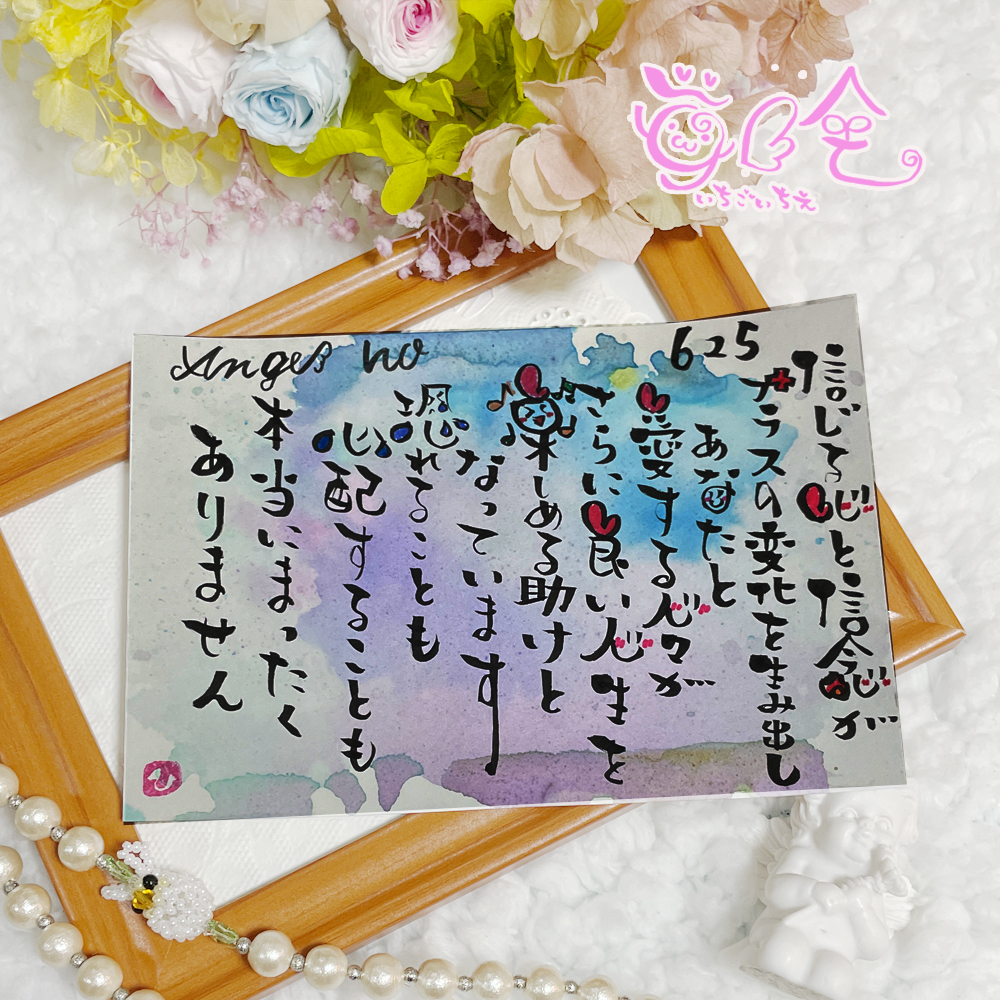 Angel no 625
信じる心と信念が
プラスの変化を生み出し
あなたと
愛する人々が
さらに良い人生を
楽しめる助けと
なっています
恐れることも
心配することも
本当にまったく
ありません
ひ
いちごいちえ